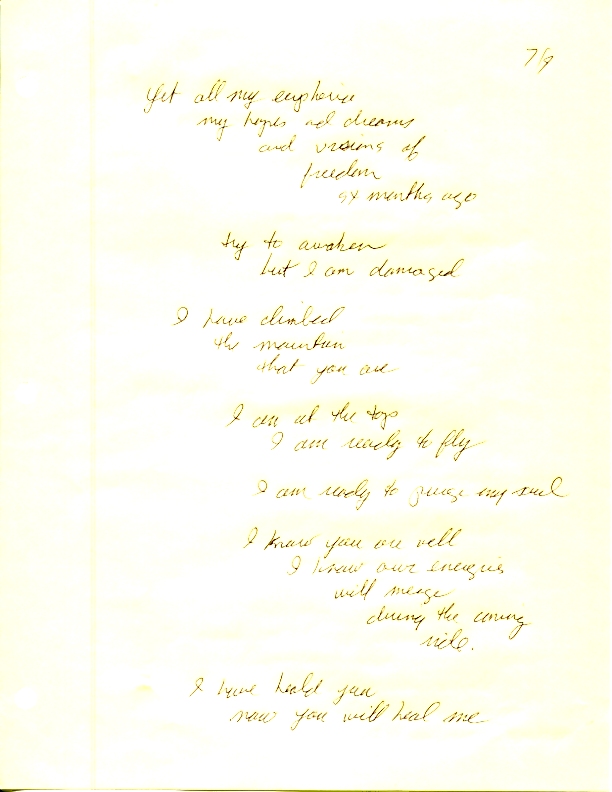 7/9
Yet all my euphoria
my hopes and dreams
and visions of
freedom
months ago
try to awaken
but I am damaged
I have climbed
the mountain
that you are
I am at the top
I am ready to fly
I am ready to purge my soul
I know you are well
I know our energies
will merge
during the coming
ride.
I have heald you
now you will heal me